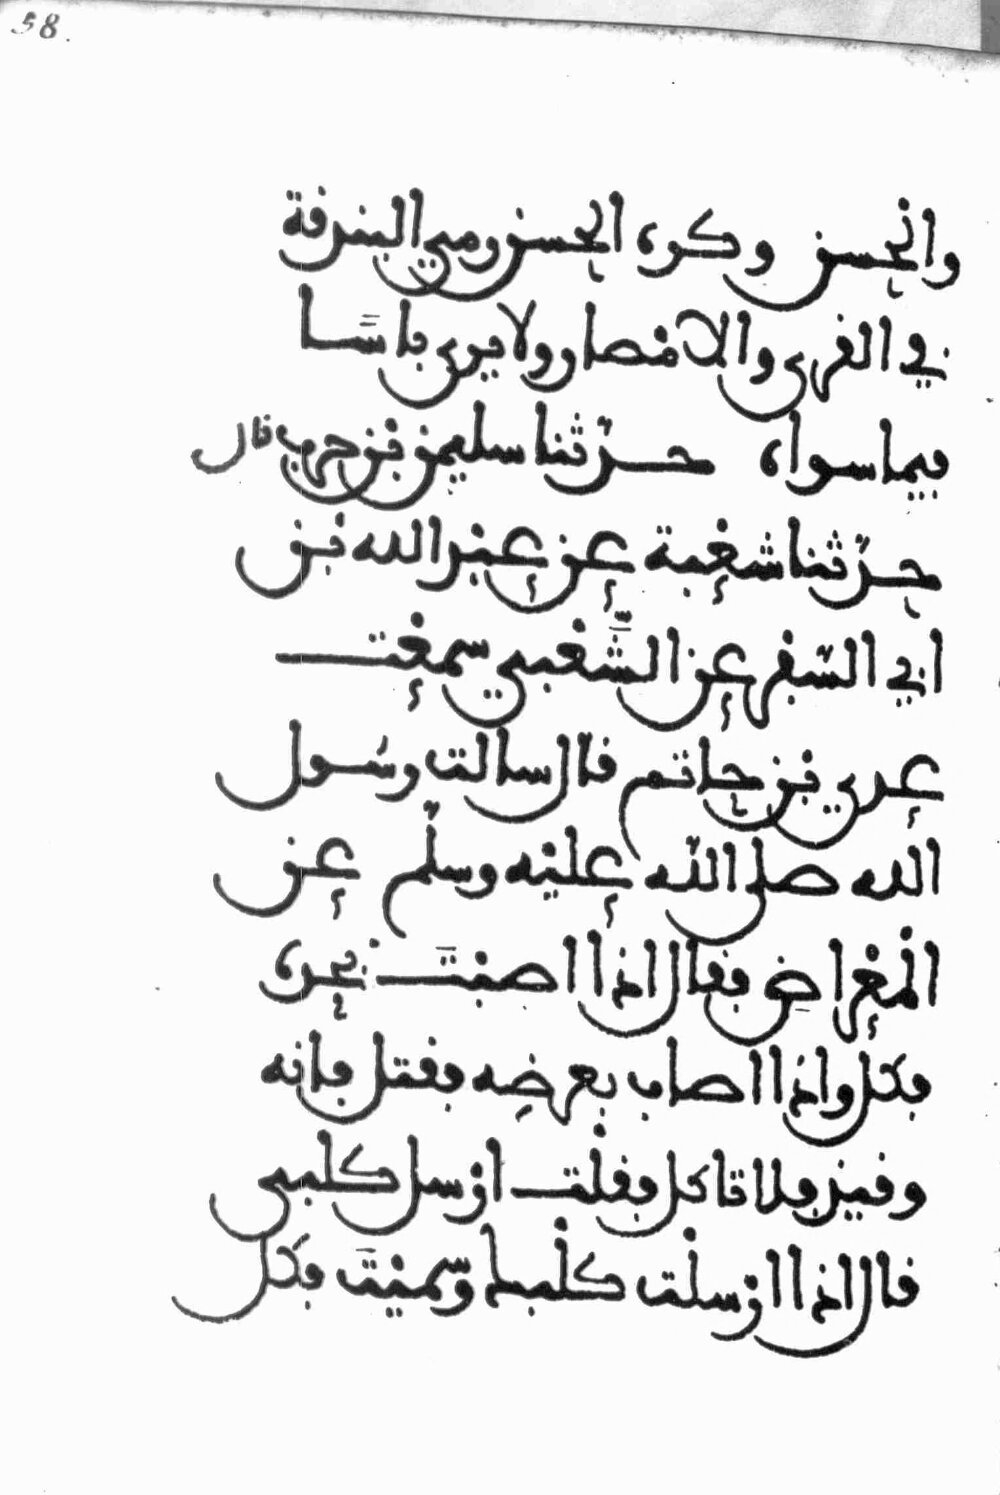 58.
والحسن وكره الحسن رمي البندقة
في القرى والامصار ولا يرى باسا
فيما سواه حدّثنا سليمن بن حرب قال
حدّثنا شعبة عن عبد الله بن
ابي السّفر عن الشّعبي سمعت
عدي بن حاتم قال سالت رسول
الله صلى الله عليه وسلّم عن
المعراض فقال اذا اصبت بحده
فكل واذا اصاب بعرضه فقتل فانه
وقيذ فلا تاكل فقلت ارسل كلبي
قال اذا ارسلت كلبك وسميت فكل